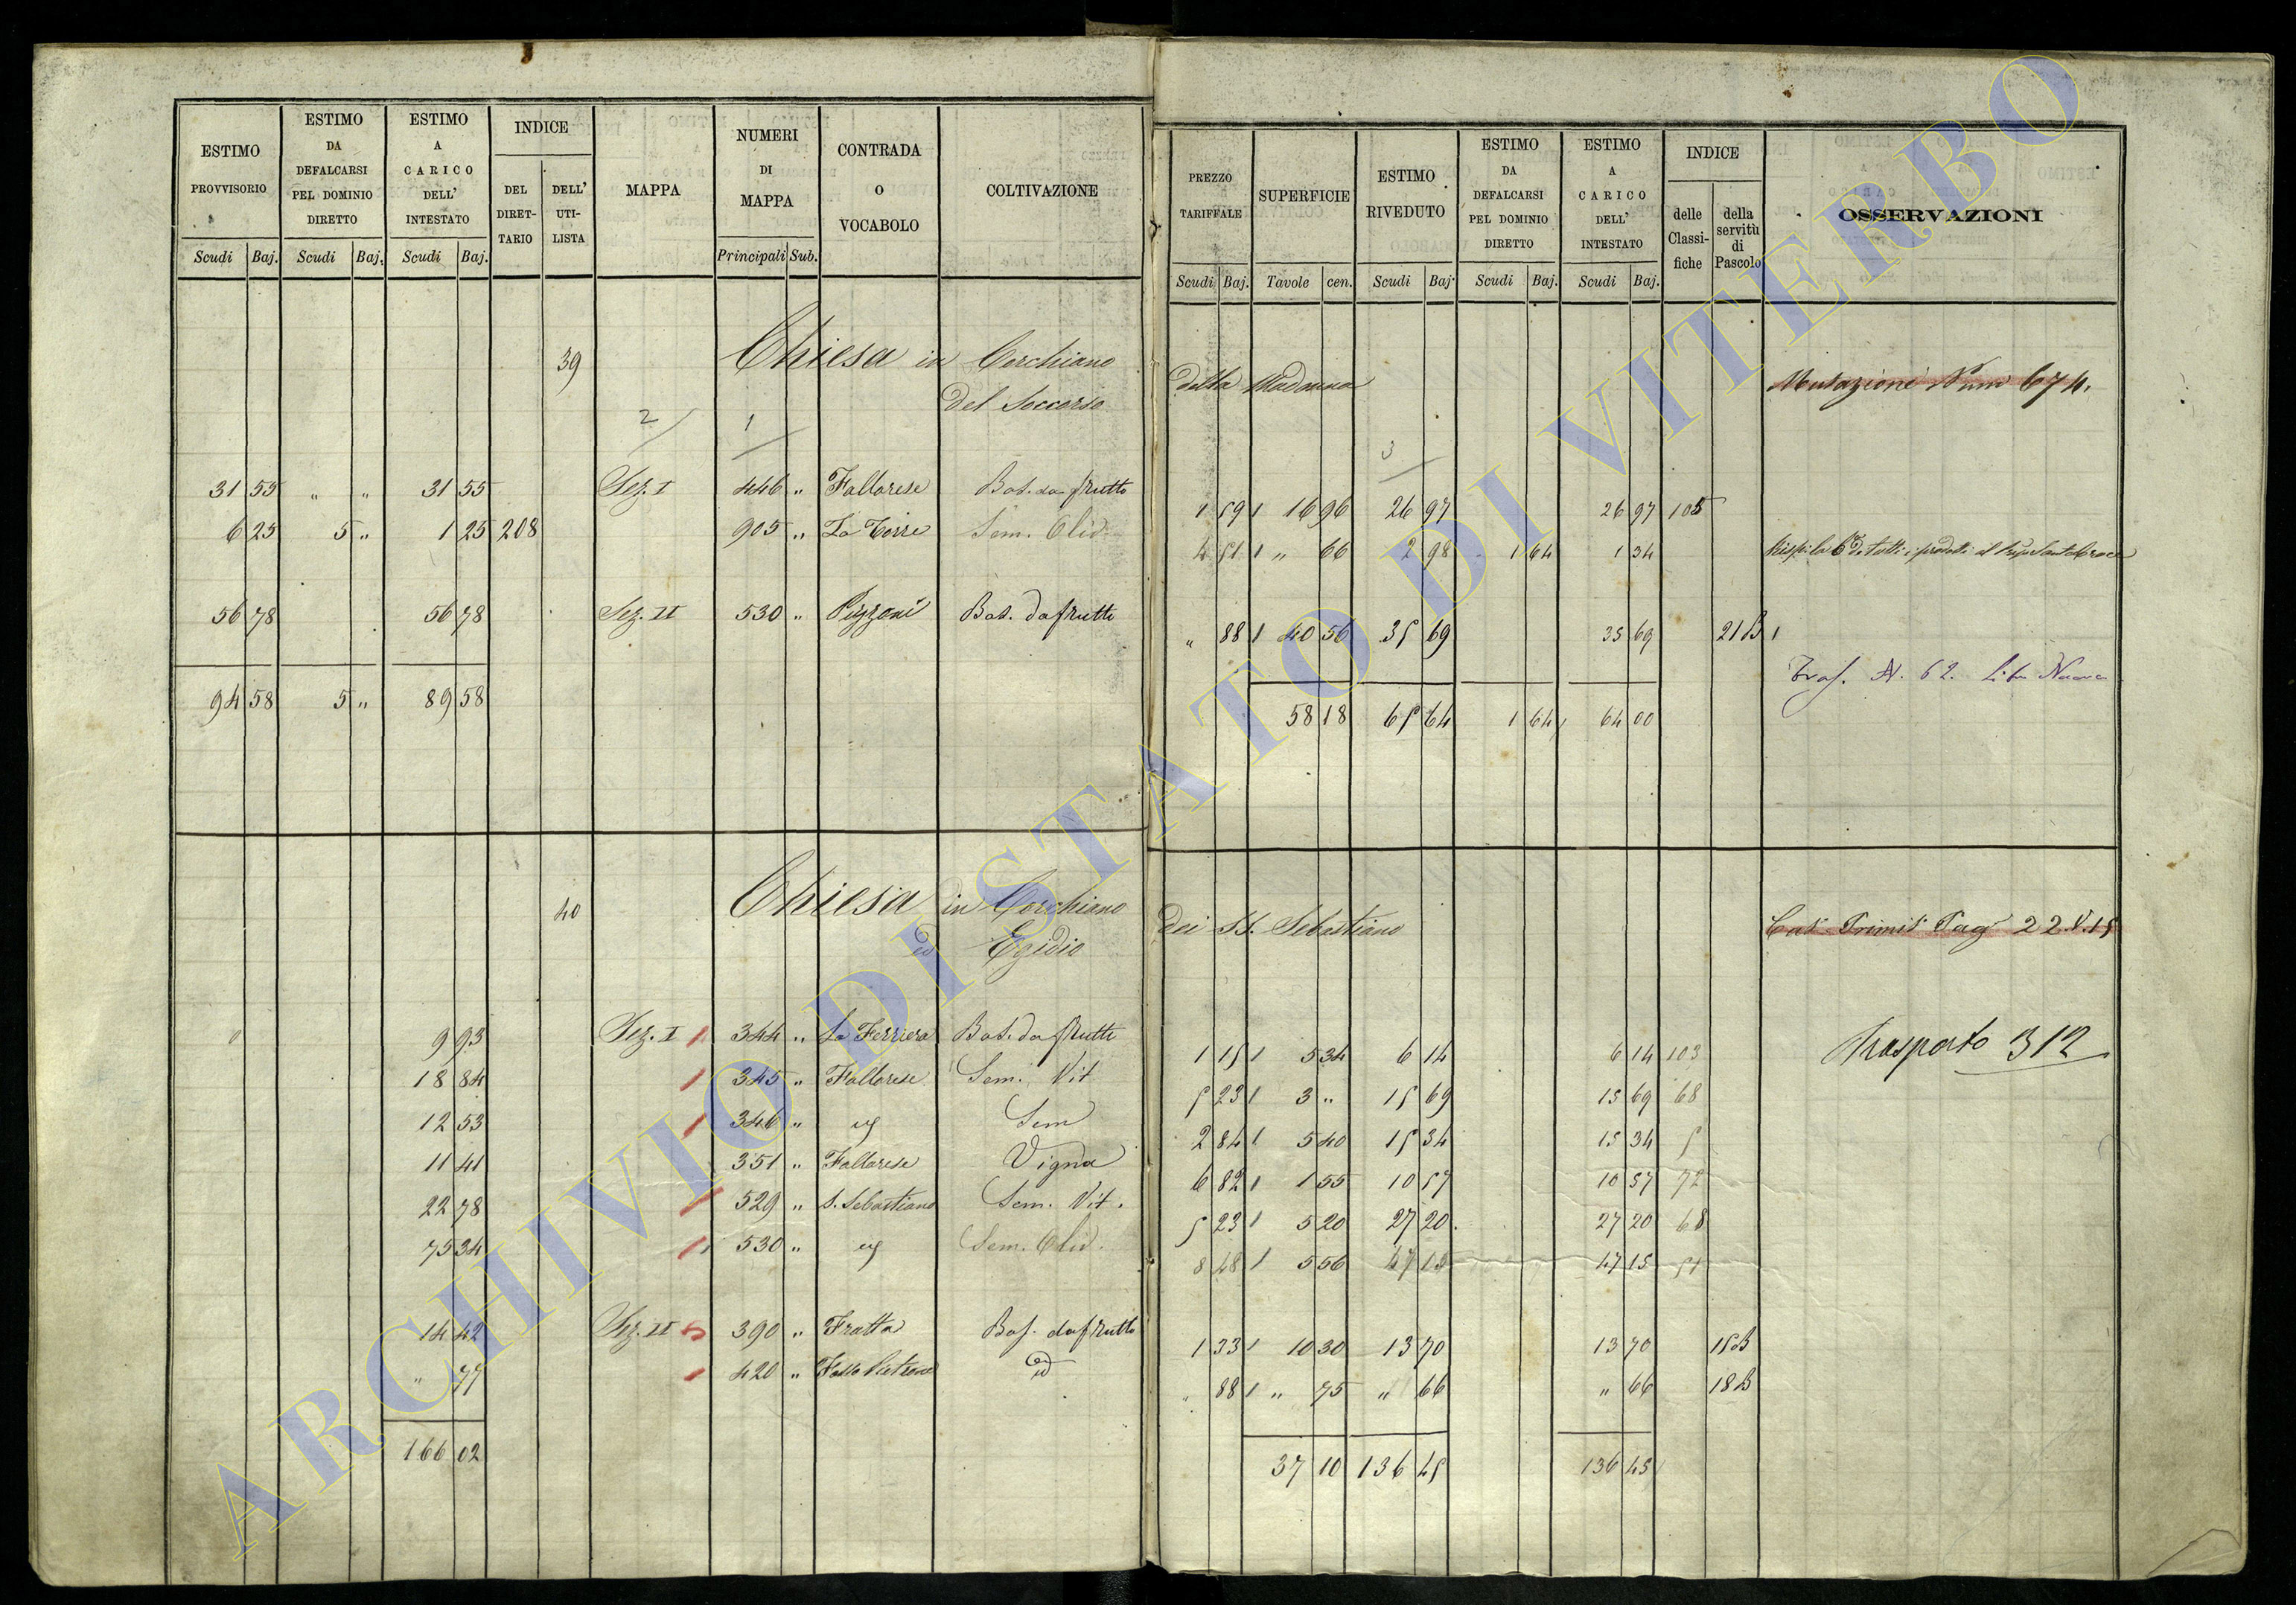 ESTIMO PROVVISORIO Scudi Baj.
ESTIMO DA DEFALCARSI PEL DOMINIO DIRETTO Scudi Baj.
ESTIMO A CARICO DELL' INTESTATO Scudi Baj.
INDICE DEL DIRET-TARIO DELL' UTI-LISTA
MAPPA
NUMERI DI MAPPA Principali Sub.
CONTRADA O VOCABOLO
COLTIVAZIONE
PREZZO TARIFFALE Scudi Baj.
SUPERFICIE Tavole cen.
ESTIMO RIVEDUTO Scudi Baj.
ESTIMO DA DEFALCARSI PEL DOMINIO DIRETTO Scudi Baj.
ESTIMO A CARICO DELL' INTESTATO Scudi Baj.
INDICE delle Classi-fiche della servitù di Pascolo
OSSERVAZIONI
39 Chiesa in Corchiano della Madonna Mutazione Num 674.
del Soccorso
2 1 3
31 55 " " 31 55 Sez. I 446 " Fallarese Bos. da frutto 1 59 16 96 26 97 26 97 105
6 25 5 " 1 25 208 905 " La Torre Sem. Oliv. 4 51 " 66 2 98 1 64 1 34
56 78 56 78 Sez. II 530 " Pizzoni Bos. da frutto " 88 40 56 35 69 35 69 21 B
Tras. N. 62. Libro Nuovo
94 58 5 " 89 58 58 18 65 64 1 64 64 00
40 Chiesa in Corchiano dei SS. Sebastiano Cat Primit Pag 22.V.15
ed Egidio
9 93 Sez. I 344 " La Ferriera Bos. da frutto 1 15 5 34 6 14 6 14 103 Trasporto 312
18 84 345 " Fallarese Sem. Vit 5 23 3 " 15 69 15 69 68
12 53 346 " Sem 2 84 5 40 15 34 15 34 5
11 41 351 " Fallarese Vigna 6 82 1 55 10 57 10 57 72
22 78 529 " S. Sebastiano Sem. Vit. 5 23 5 20 27 20 27 20 68
75 34 530 " Sem. Oliv. 8 48 5 56 47 15 47 15 51
14 42 Sez. II 390 " Fratta Bos. da frutto 1 33 10 30 13 70 13 70 15 B
" 77 420 " Fosso id " 88 " 75 " 66 " 66 18 B
166 02 37 10 136 45 136 45
ARCHIVIO DI STATO DI VITERBO